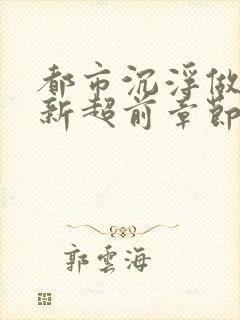 都市沉浮做
新超前章節
郭雲海